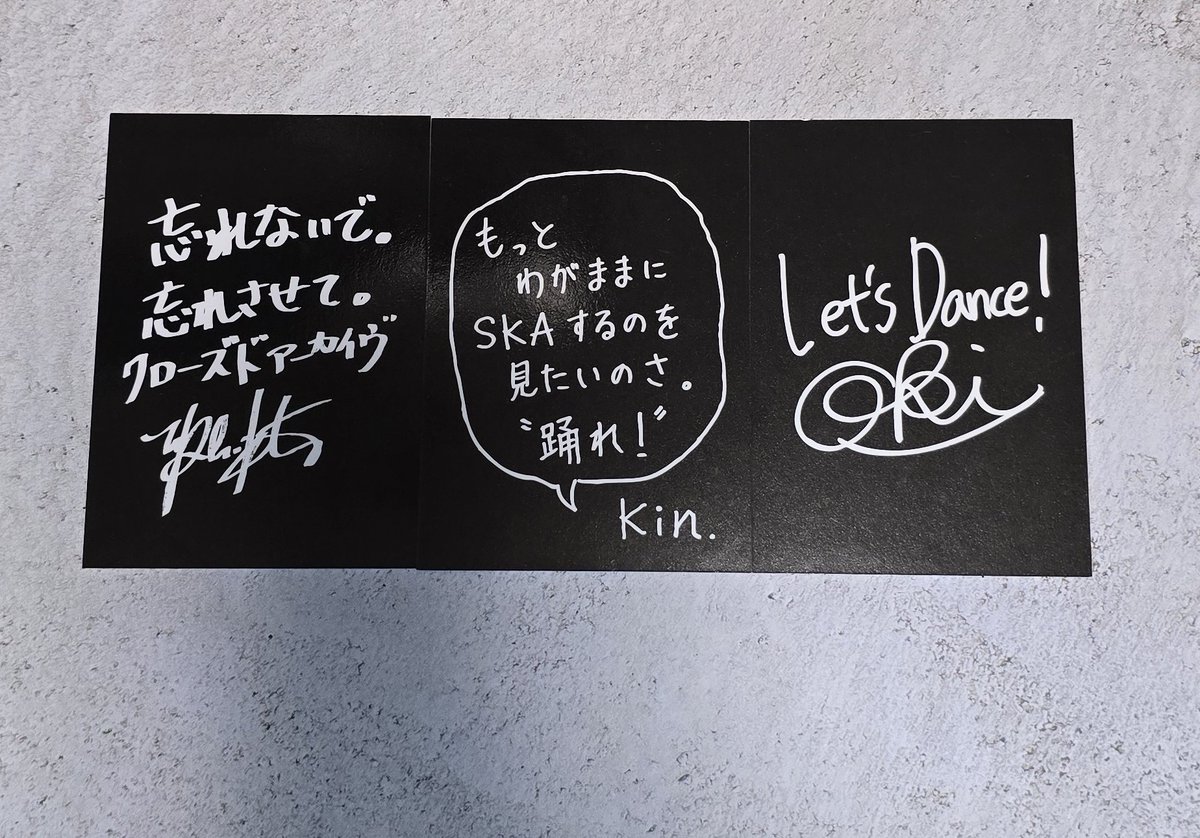 忘れないで。
忘れさせて。
クローズドアーカイヴ
もっと
わがままに
SKAするのを
見たいのさ。
"踊れ!"
Kin.
Let's Dance!